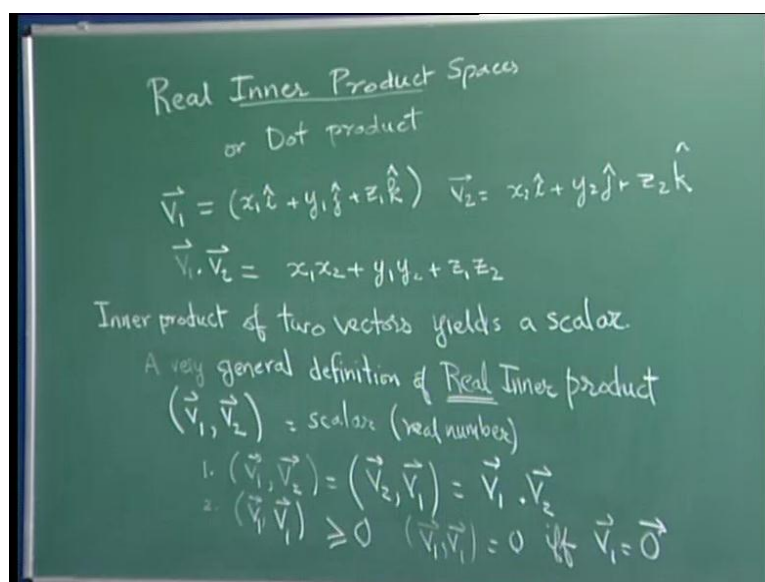 Real Inner Product Spaces
or Dot product
v⃗₁ = (x₁î + y₁ĵ + z₁k̂) v⃗₂ = x₂î + y₂ĵ + z₂k̂
v⃗₁ . v⃗₂ = x₁x₂ + y₁y₂ + z₁z₂
Inner product of two vectors yields a scalar.
A very general definition of Real Inner product
(v⃗₁, v⃗₂) = scalar (real number)
1. (v⃗₁, v⃗₂) = (v⃗₂, v⃗₁) = v⃗₁ . v⃗₂
2. (v⃗₁, v⃗₁) ⩾ 0 (v⃗₁, v⃗₁) = 0 iff v⃗₁ = 0⃗